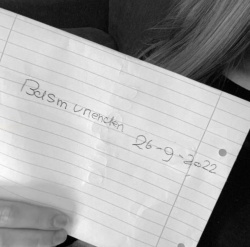 Bdsm vrienden
26-9-2022